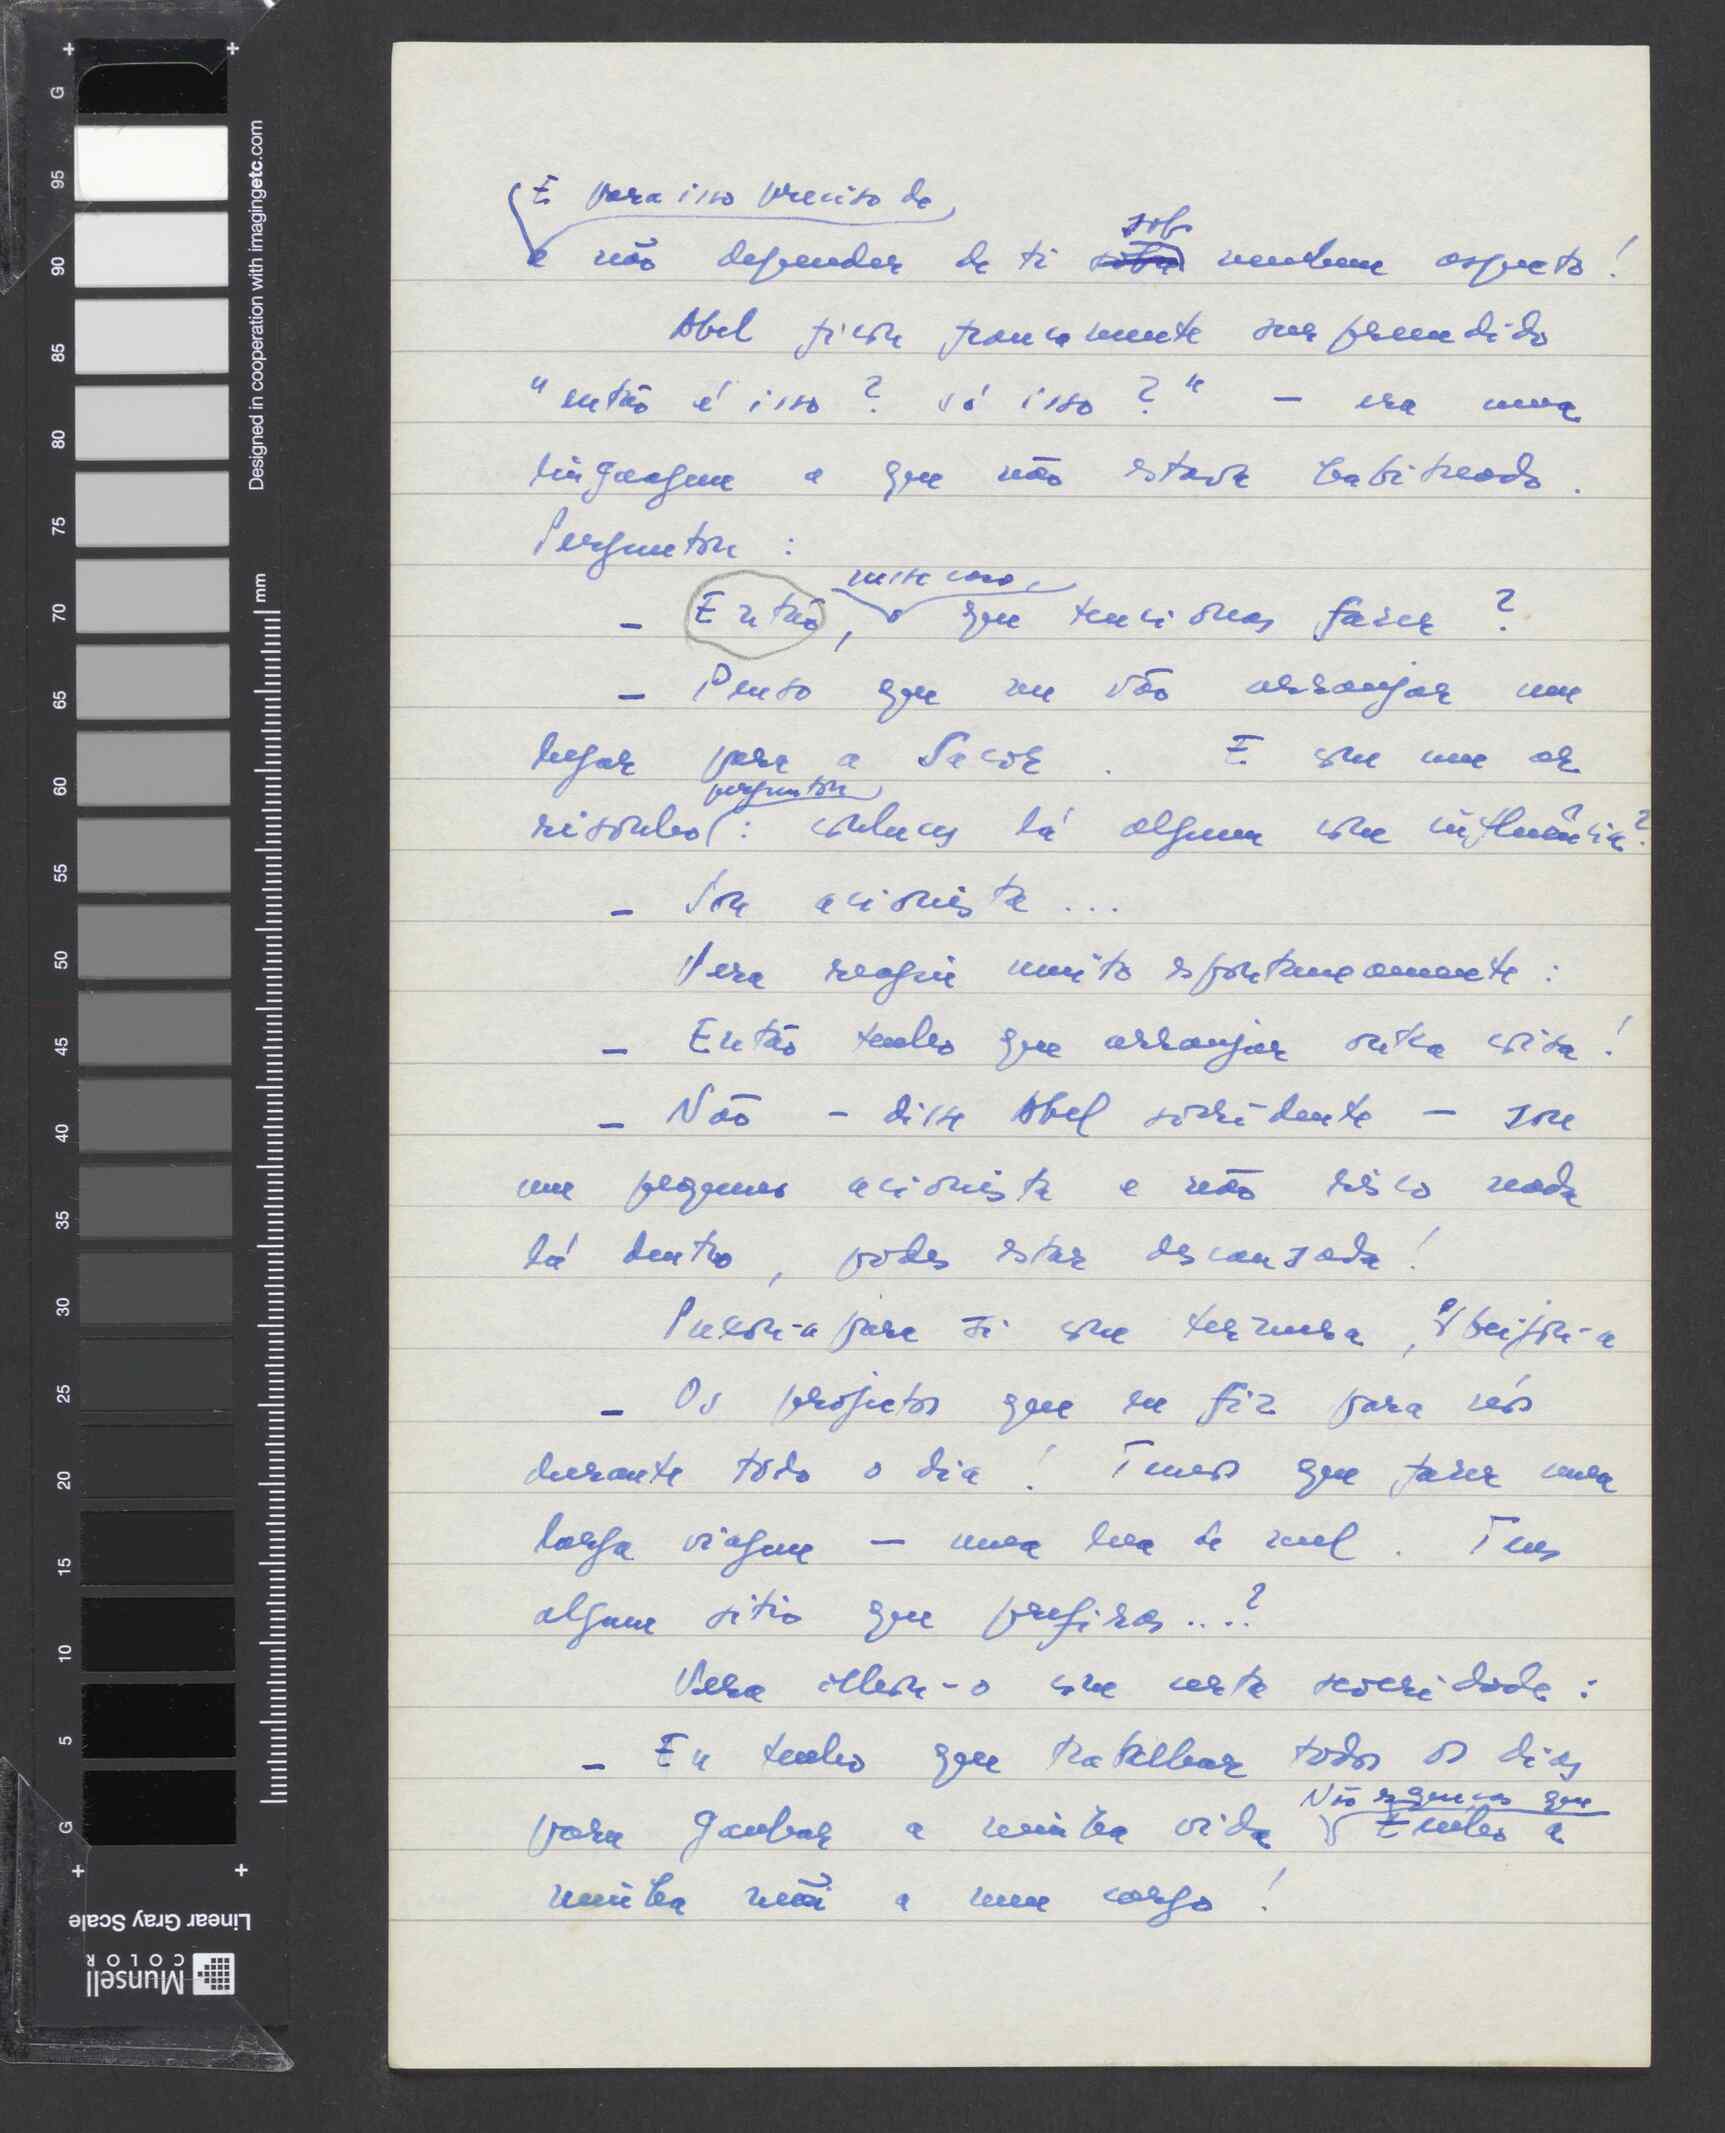 G
95
90
85
80
75
70
65
60
55
50
45
40
35
30
25
20
15
10
5
G
Designed in cooperation with imagingetc.com
mm
Linear Gray Scale
Munsell
COLOR
E para isso preciso de
e não depender de ti sob nenhum aspecto!
Abel ficou francamente surpreendido
"então é isso? só isso?" — era uma
linguagem a que não estava habituado.
Perguntou:
nesse caso,
— Então, o que tencionas fazer?
— Penso que me vão arranjar um
lugar para a Sacor. E com um ar
perguntou
risonho: conheces lá alguem com influência?
— Sou acionista...
Vera reagiu muito espontaneamente:
— Então tenho que arranjar outra coisa!
— Não — disse Abel sorridente — sou
um pequeno acionista e não risco nada
lá dentro, podes estar descansada!
Puxou-a para si com ternura, e beijou-a
— Os projectos que eu fiz para nós
durante todo o dia! Temos que fazer uma
larga viagem — uma lua de mel. Tens
algum sitio que prefiras...?
Vera olhou-o com certa severidade:
— Eu tenho que trabalhar todos os dias
Não esqueças que
para ganhar a minha vida Tenho a
minha mãi a meu cargo!